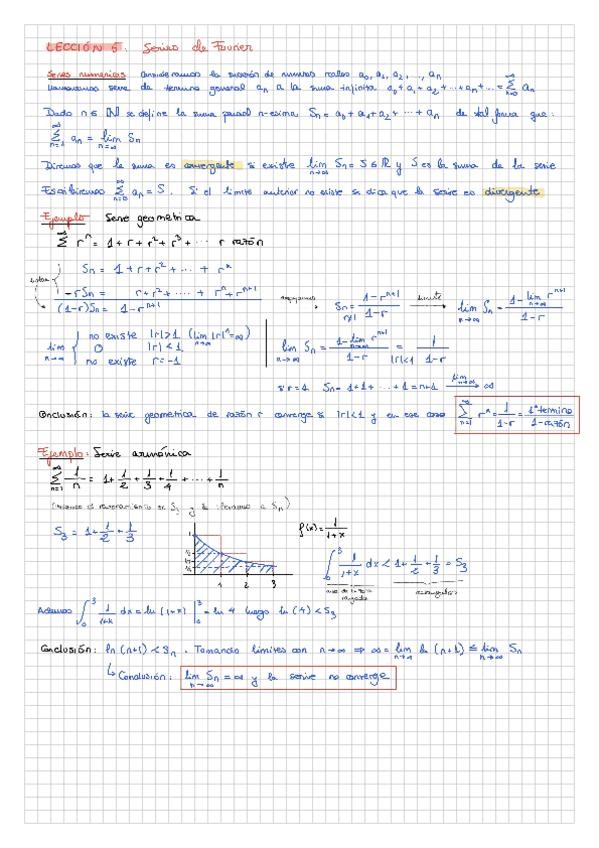 LECCIÓN 5. Series de Fourier
Series numéricas consideramos la sucesión de números reales a₀, a₁, a₂, ..., aₙ
llamaremos serie de termino general aₙ a la suma infinita a₀+a₁+a₂+...+aₙ+... = ∑_{n=0}^{∞} aₙ
Dado n ∈ ℕ se define la suma parcial n-esima Sₙ = a₀+a₁+a₂+...+aₙ de tal forma que:
∑_{n=1}^{∞} aₙ = lim_{n→∞} Sₙ
Diremos que la suma es convergente si existe lim_{n→∞} Sₙ = S ∈ ℝ y S es la suma de la serie
Escribiremos ∑_{n=0}^{∞} aₙ = S. Si el limite anterior no existe se dice que la serie es divergente
Ejemplo Serie geometrica
∑ rⁿ = 1 + r + r² + r³ + ... r razón
Sₙ = 1 + r + r² + ... + rⁿ
restar
-rSₙ = r + r² + ... + rⁿ + rⁿ⁺¹
(1-r)Sₙ = 1 - rⁿ⁺¹
Sₙ = (1 - rⁿ⁺¹)/(1-r) r≠1 limite lim_{n→∞} Sₙ = (1 - lim_{n→∞} rⁿ⁺¹)/(1-r)
lim_{n→∞} { no existe |r|>1 (lim_{n→∞} |r|ⁿ=∞)
0 |r|<1
no existe r=-1
lim_{n→∞} Sₙ = (1 - lim_{n→∞} rⁿ⁺¹)/(1-r) = 1/(1-r) |r|<1
si r=1 Sₙ = 1+1+...+1 = n+1 lim_{n→∞} → ∞
Conclusión: la serie geometrica de razón r converge si |r|<1 y en ese caso ∑_{n=1}^{∞} rⁿ = 1/(1-r) = 1º termino/(1-razón)
Ejemplo: Serie armónica
∑_{n=1}^{∞} 1/n = 1 + 1/2 + 1/3 + 1/4 + ... + 1/n
(hacemos el razonamiento en S₃ y lo llevamos a Sₙ)
S₃ = 1 + 1/2 + 1/3
1
1/2
1/3
1/4
1 2 3
f(x) = 1/(1+x)
∫₀³ 1/(1+x) dx < 1 + 1/2 + 1/3 = S₃
area de la zona rayada
rectangulos
Ademas ∫₀³ 1/(1+x) dx = ln(1+x) |₀³ = ln 4 luego ln(4) < S₃
Conclusión: ln(n+1) < Sₙ. Tomando limites con n→∞ ⇒ ∞ = lim_{n→∞} ln(n+1) ≤ lim_{n→∞} Sₙ
↳ Conclusión: lim_{n→∞} Sₙ = ∞ y la serie no converge